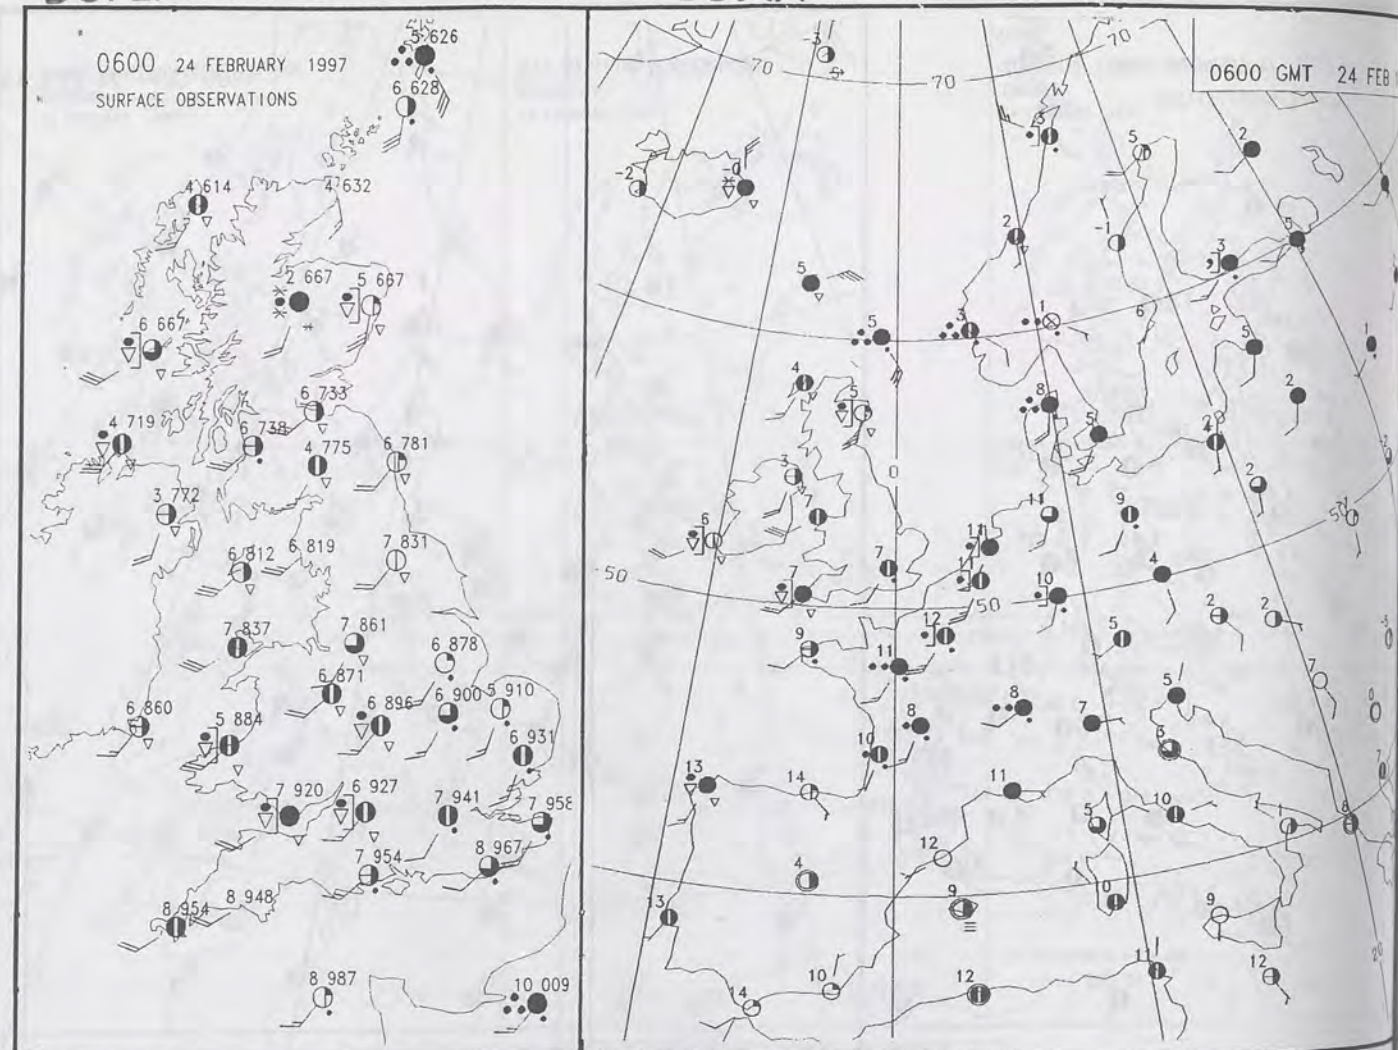 0600 24 FEBRUARY 1997
SURFACE OBSERVATIONS
5 626
6 628
4 614
4 632
2 667
5 667
6 667
6 733
4 719
6 738
4 775
6 781
3 772
6 812
6 819
7 831
7 837
7 861
6 878
6 871
6 860
5 884
6 896
6 900
5 910
6 931
7 920
6 927
7 941
7 958
7 954
8 967
8 954
8 948
8 987
10 009
0600 GMT 24 FEB
-3
70
70
70
5
2
-2
-0
2
-1
3
5
5
5
3
1
6
5
1
4
5
8
5
2
4
2
3
0
7
6
11
9
50
11
11
7
50
7
10
4
2
2
9
12
5
7
11
8
8
7
5
3
10
13
14
11
5
10
1
8
12
4
9
13
0
9
10
14
12
11
12